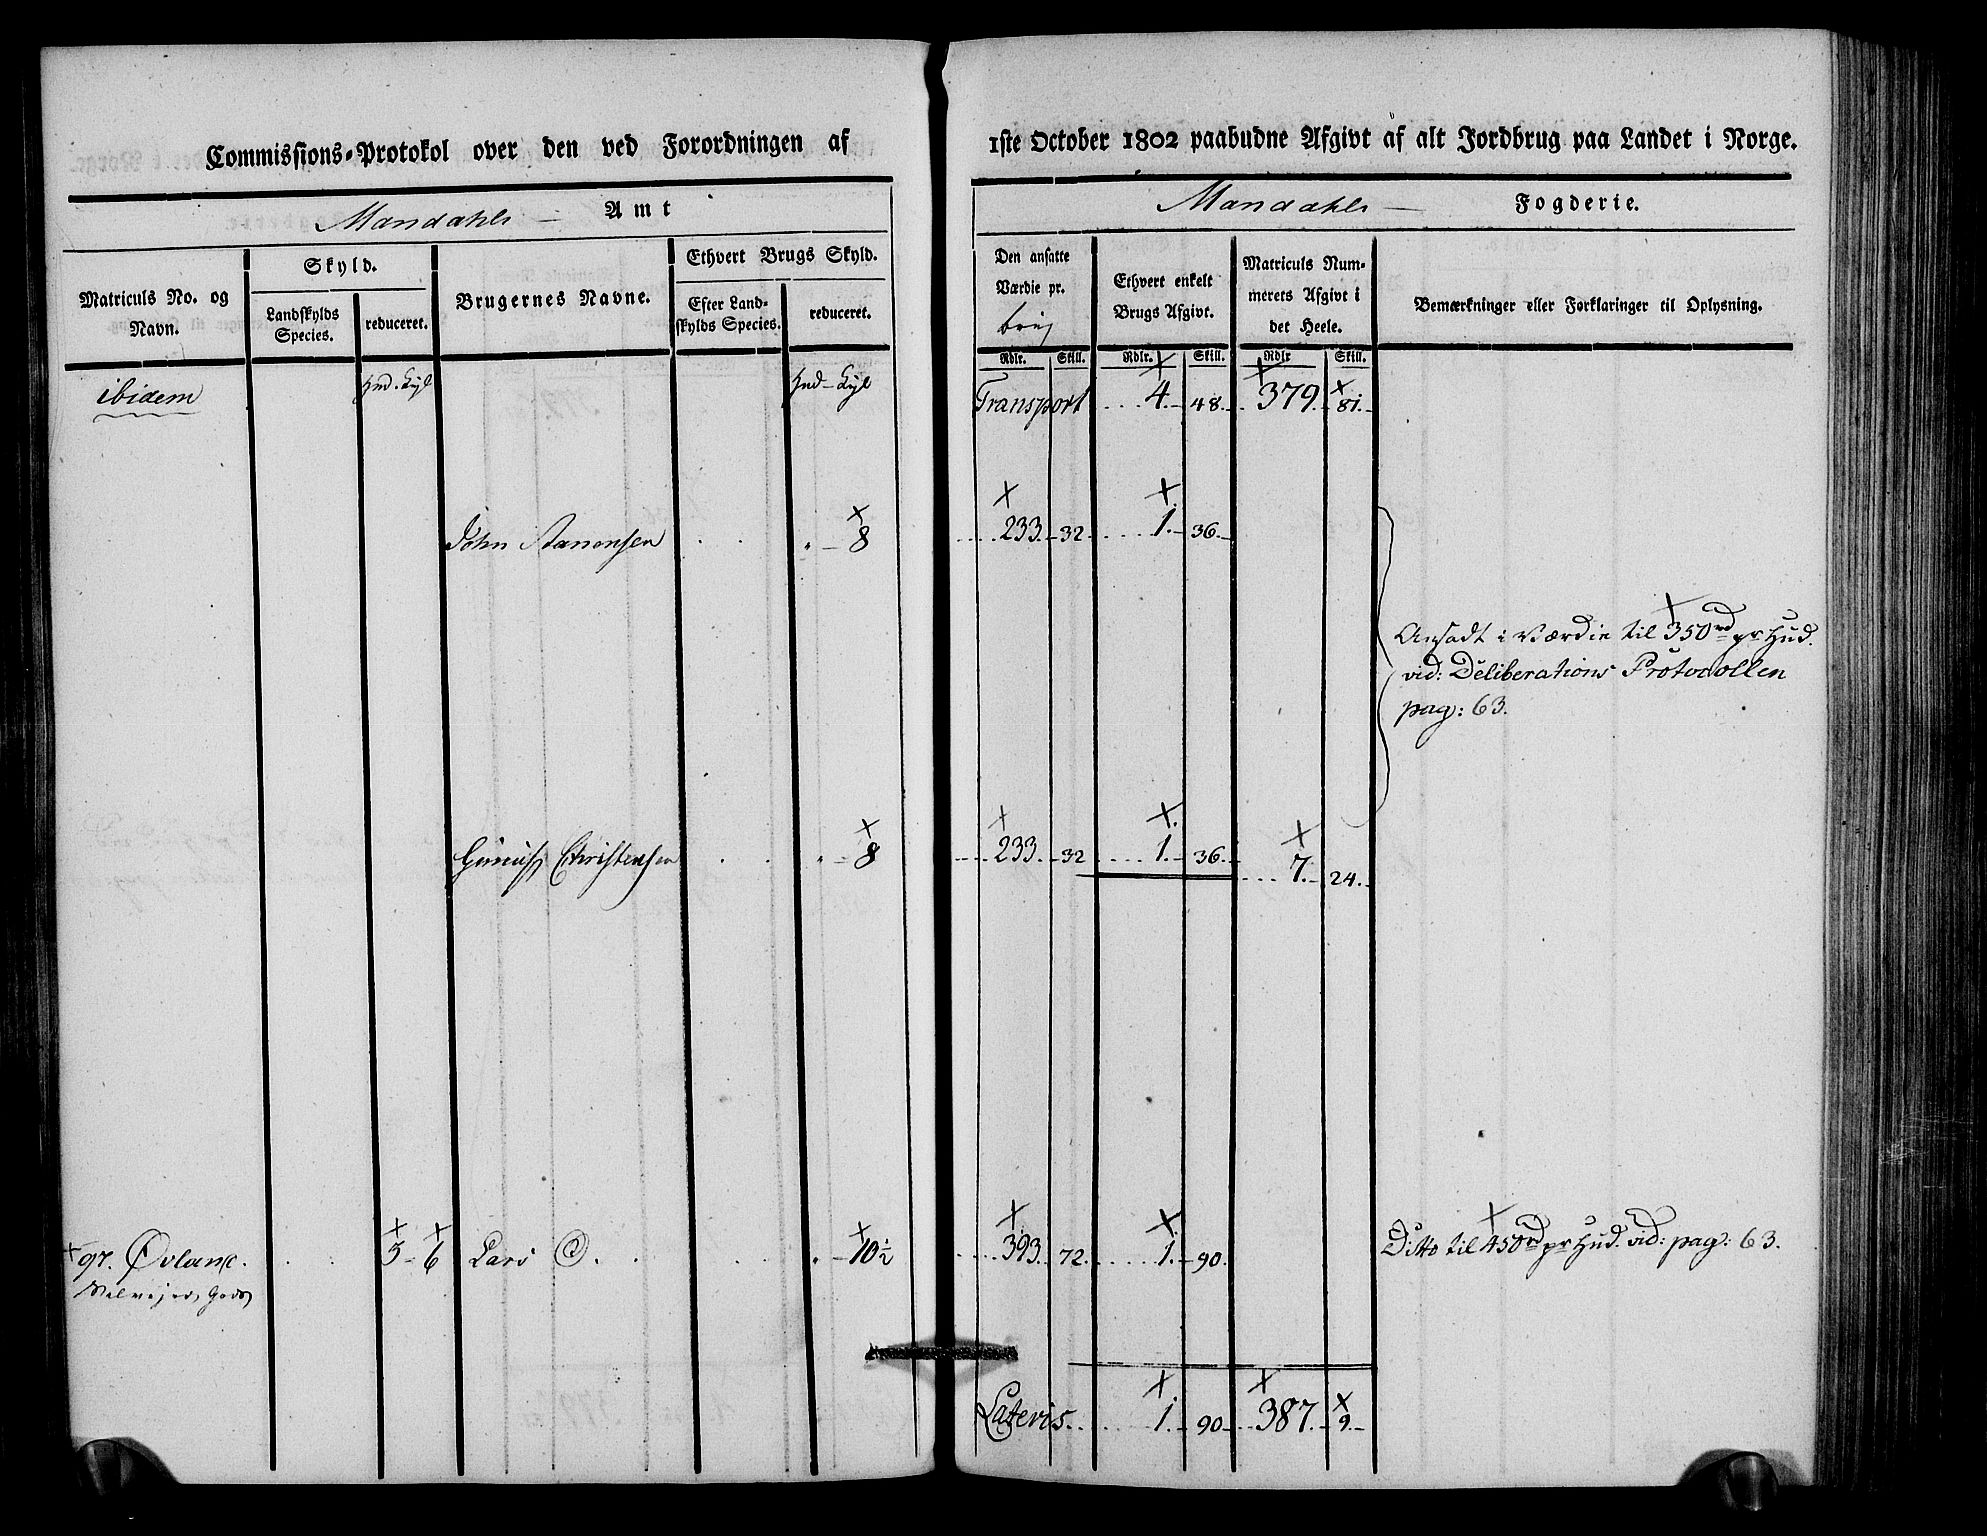 Commissions-Protokol over den ved Forordningen af 1ste October 1802 paabudne Afgivt af alt Jordbrug paa Landet i Norge.
Mandahls — Amt
Mandahls — Fogderie.
Matriculs No. og Navn.
Skyld.
Landskylds Species.
reduceret.
Brugernes Navne.
Ethvert Brugs Skyld.
Efter Landskylds Species.
reduceret.
Den ansatte Værdie pr.
Rdlr. Skill.
Ethvert enkelt Brugs Afgivt.
Rdlr. Skill.
Matriculs Nummerets Afgivt i det Heele.
Rdlr Skill.
Bemærkninger eller Forklaringer til Oplysning.
ibidem
Transport 4. 48. 379. 81.
John Aanensen 8 233. 32 1. 36.
Ansadt i Værdie til 350 rd pr Hud.
vid: Deliberations Protocollen
pag: 63.
Christensen 8 233. 32 1. 36. 7. 24.
97. 5 - 6 Lars 10 ½ 393. 72. 1. 90. Ditto til 450 rd pr Hud. vid: pag: 63.
Lateris. 1. 90 387. 9.